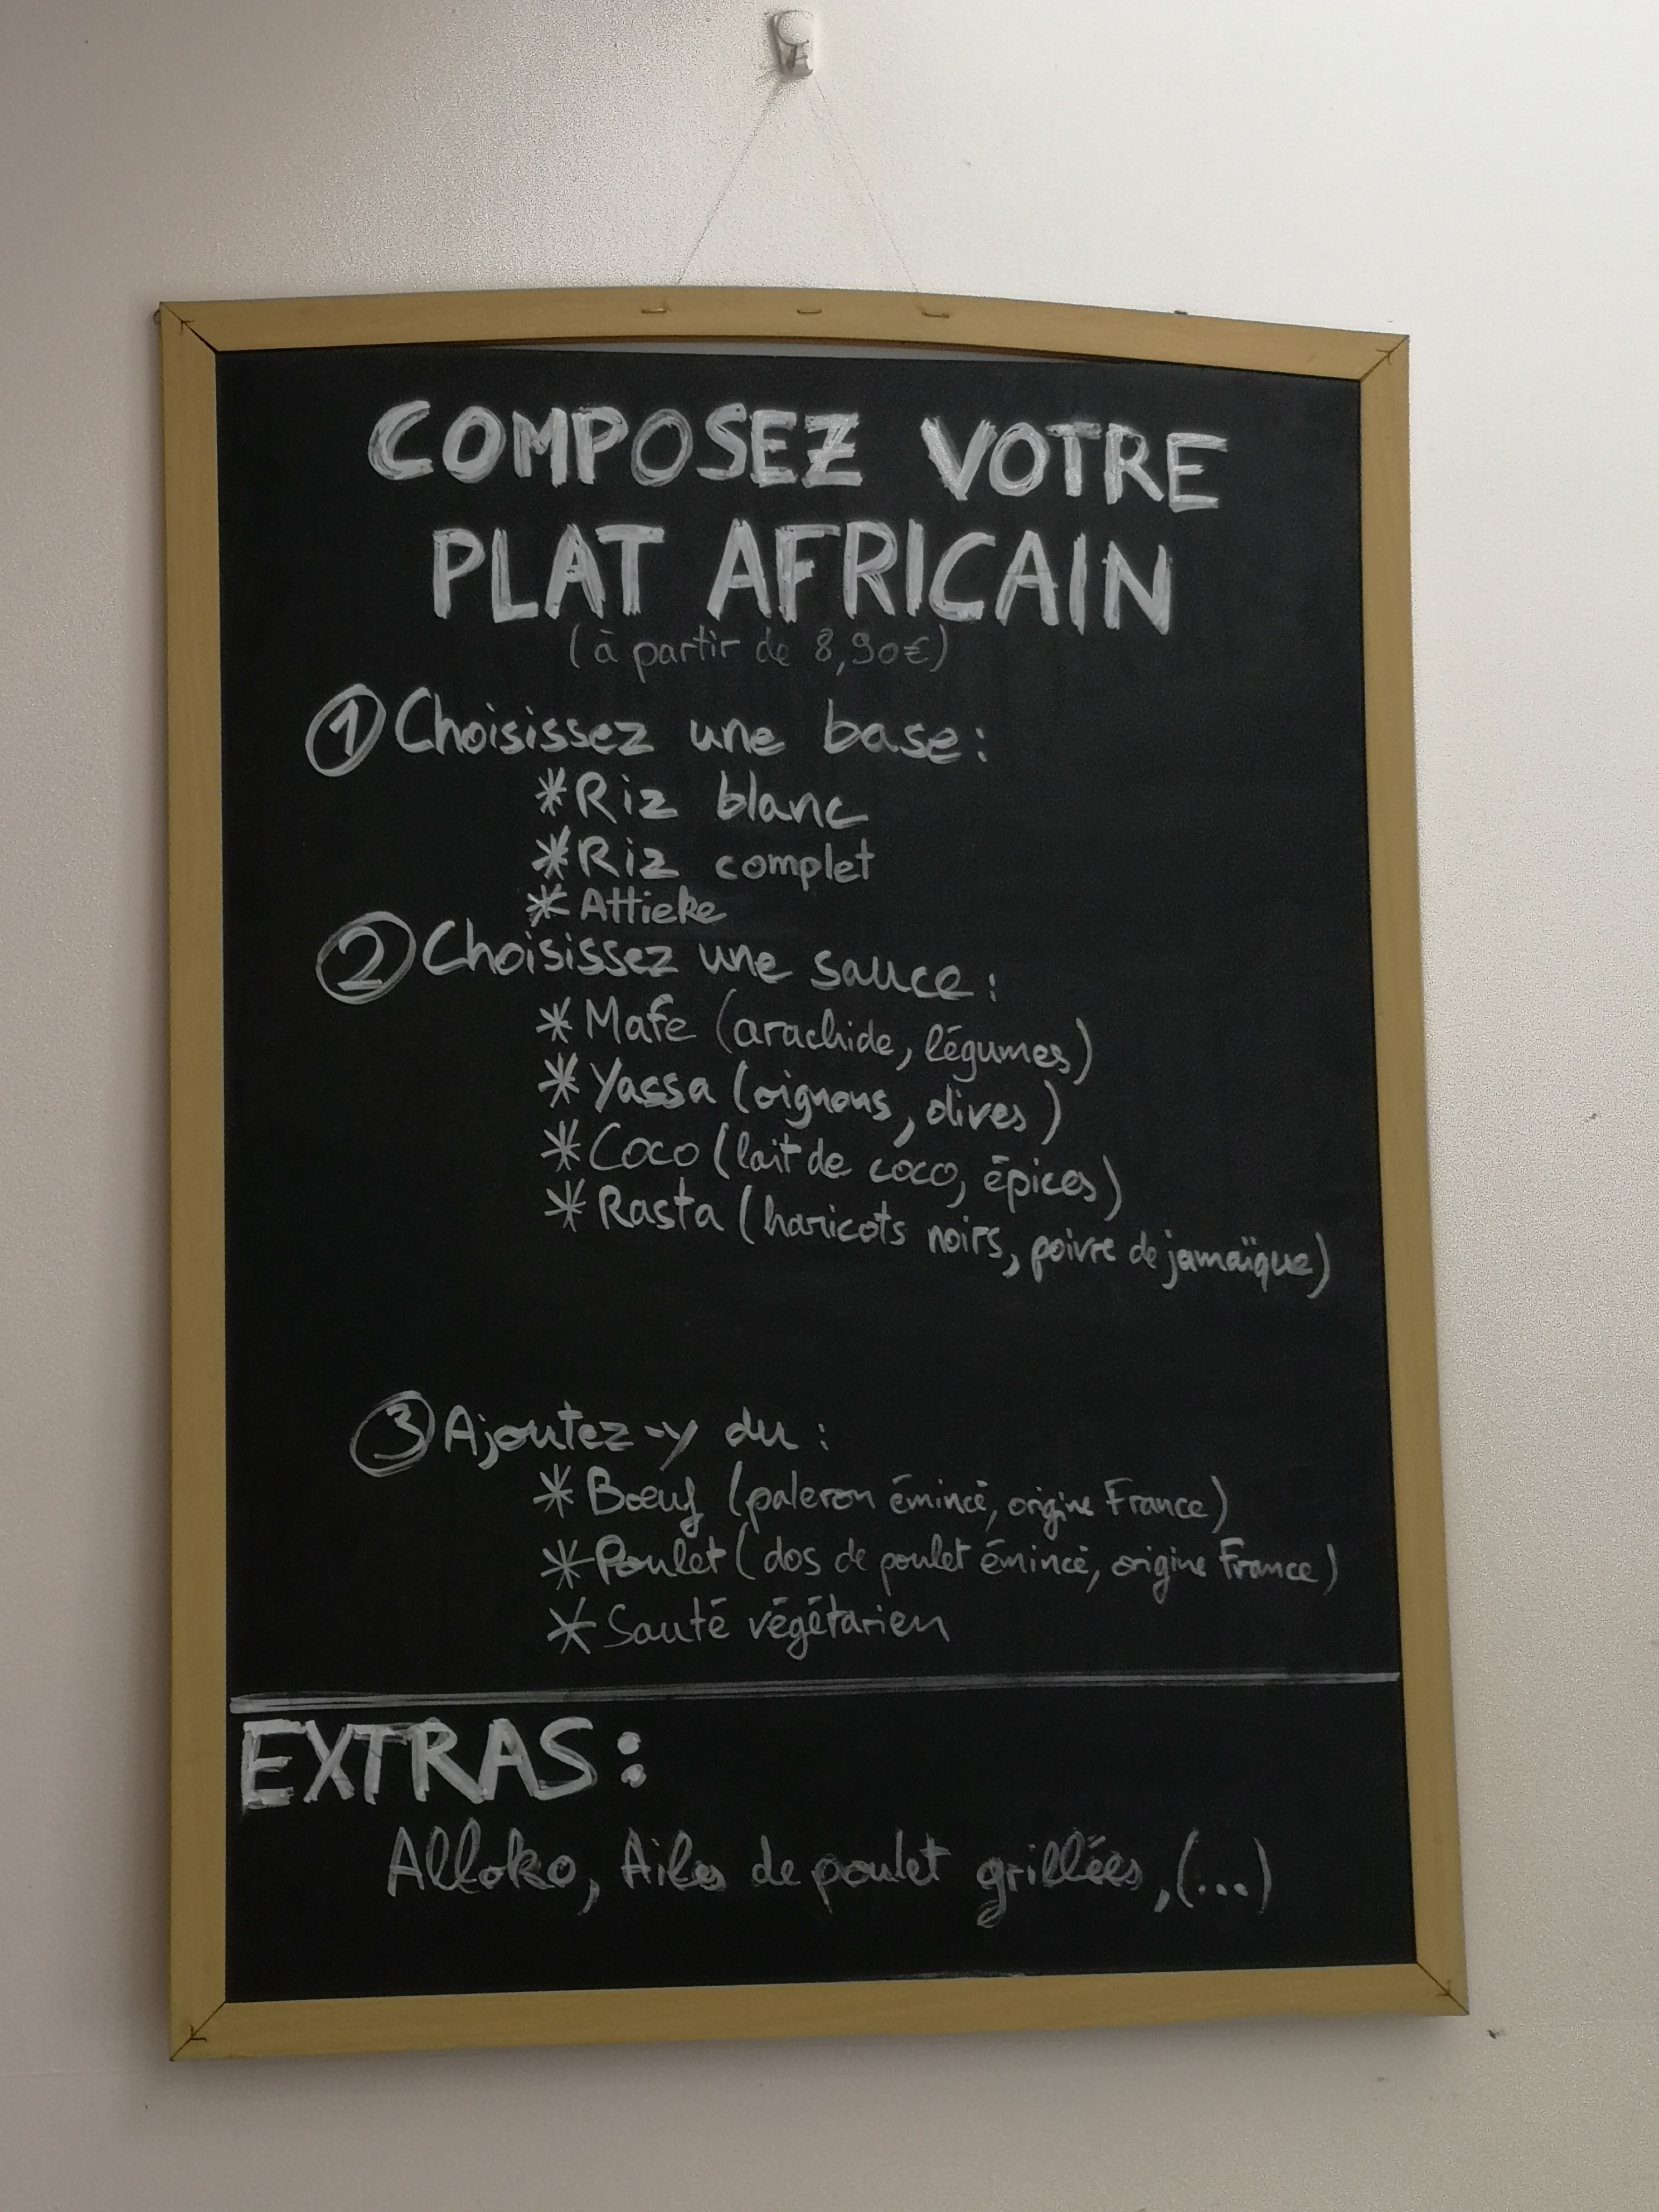 COMPOSEZ VOTRE
PLAT AFRICAIN
(à partir de 8,90€)
① Choisissez une base:
* Riz blanc
* Riz complet
* Attieke
② Choisissez une sauce:
* Mafe (arachide, légumes)
* Yassa (oignons, olives)
* Coco (lait de coco, épices)
* Rasta (haricots noirs, poivre de jamaïque)
③ Ajoutez-y du:
* Bœuf (paleron émincé, origine France)
* Poulet (dos de poulet émincé, origine France)
* Sauté végétarien
EXTRAS:
Alloko, Ailes de poulet grillées, (...)